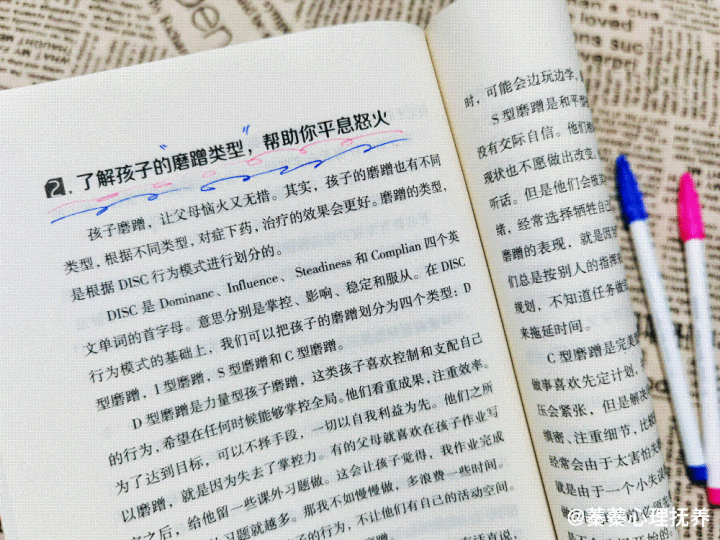 2.了解孩子的“磨蹭类型”，帮助你平息怒火
孩子磨蹭，让父母恼火又无措。其实，孩子的磨蹭也有不同
类型，根据不同类型，对症下药，治疗的效果会更好。磨蹭的类型，
是根据 DISC 行为模式进行划分的。
DISC 是 Dominanc、Influence、Steadiness 和 Complian 四个英
文单词的首字母。意思分别是掌控、影响、稳定和服从。在 DISC
行为模式的基础上，我们可以把孩子的磨蹭划分为四个类型：D
型磨蹭，I 型磨蹭，S 型磨蹭和 C 型磨蹭。
D 型磨蹭是力量型孩子磨蹭，这类孩子喜欢控制和支配自己
的行为，希望在任何时候能够掌控全局。他们看重成果，注重效率。
为了达到目标，可以不择手段，一切以自我利益为先。他们之所
以磨蹭，就是因为失去了掌控力。有的父母就喜欢在孩子作业写
完之后，给他留一些课外习题做。这会让孩子觉得，我作业完成
习题就越多。那我不如慢慢做，多浪费一些时间。
子的行为，不让他们有自己的活动空间。
时，可能会边玩边学，
S 型磨蹭是和平型
没有交际自信。他们
现状也不愿做出改变，
听话。但是他们会
绪，经常选择牺牲自己
磨蹭的表现，就是因
们总是按别人的指挥
规划，不知道任务做
来拖延时间。
C 型磨蹭是完美
做事喜欢先定计划，
压会紧张，但是解
缜密、注重细节，比较
经常会由于太害怕失
就是由于一个小失误
@蓤蓤心理抚养